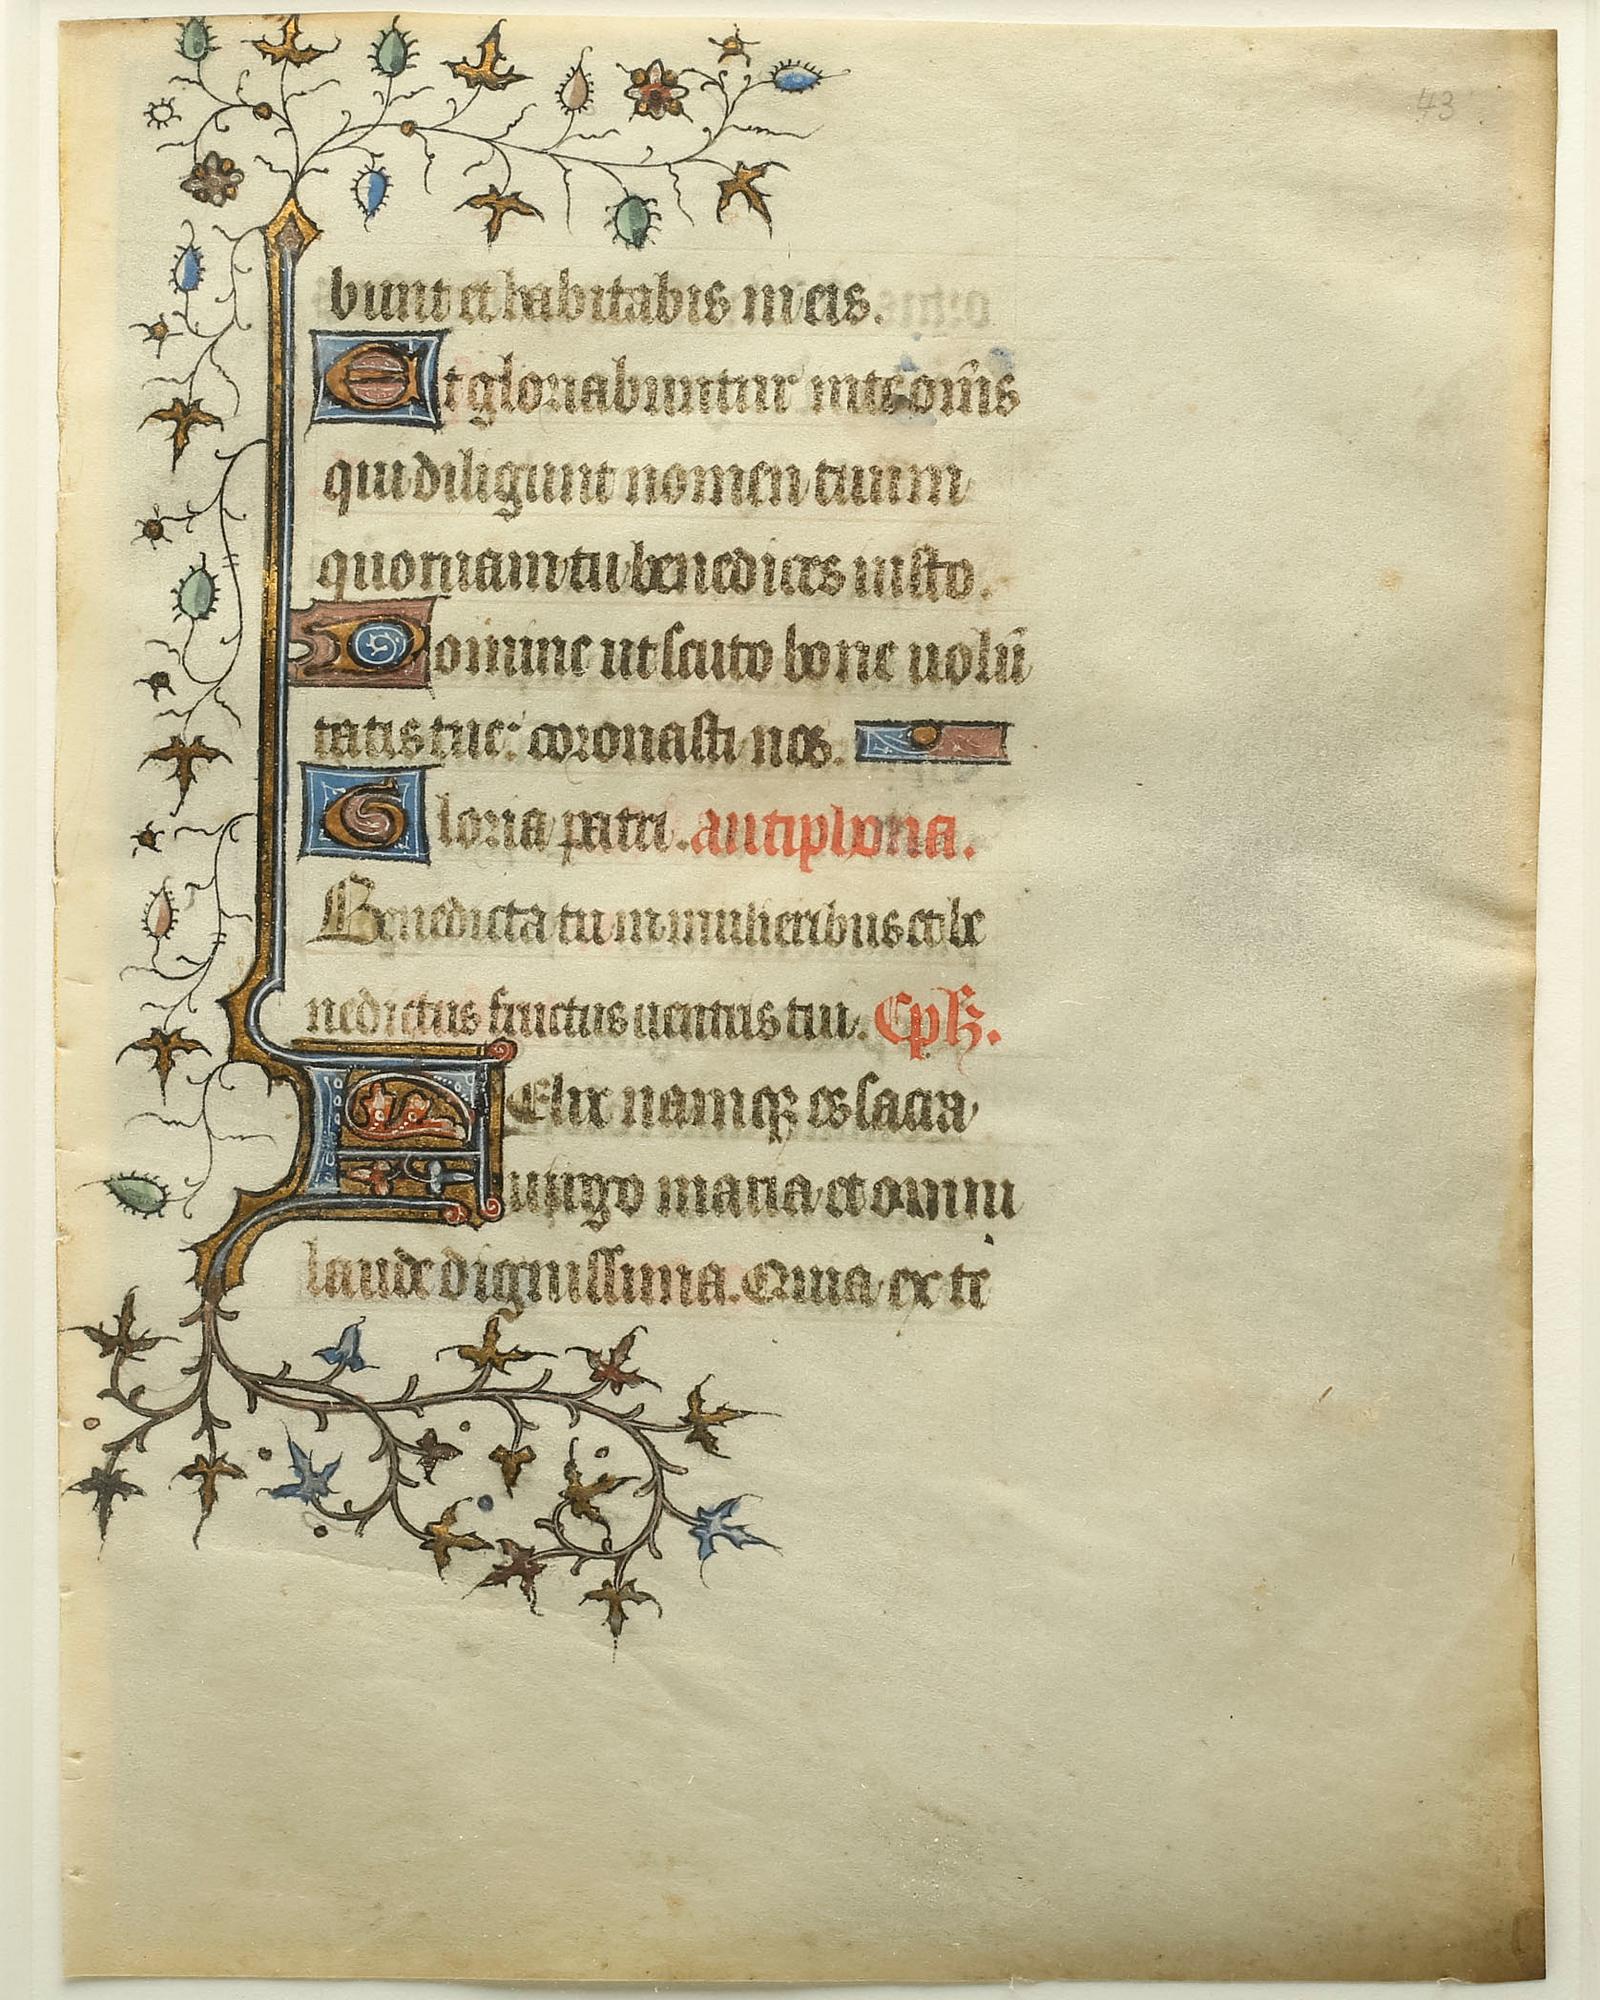 43
bunt et habitabis in eis.
Et gloriabuntur in te om̄s
qui diligunt nomen tuum
quoniam tu benedices iusto.
Domine ut scuto bone uolū
tatis tue: coronasti nos.
Gloria patri. antiphona.
Benedicta tu in mulieribus et be
nedictus fructus uentris tui. Cpł.
FElix namqꝫ es sacra
uirgo maria et omni
laude dignissima. Quia ex te